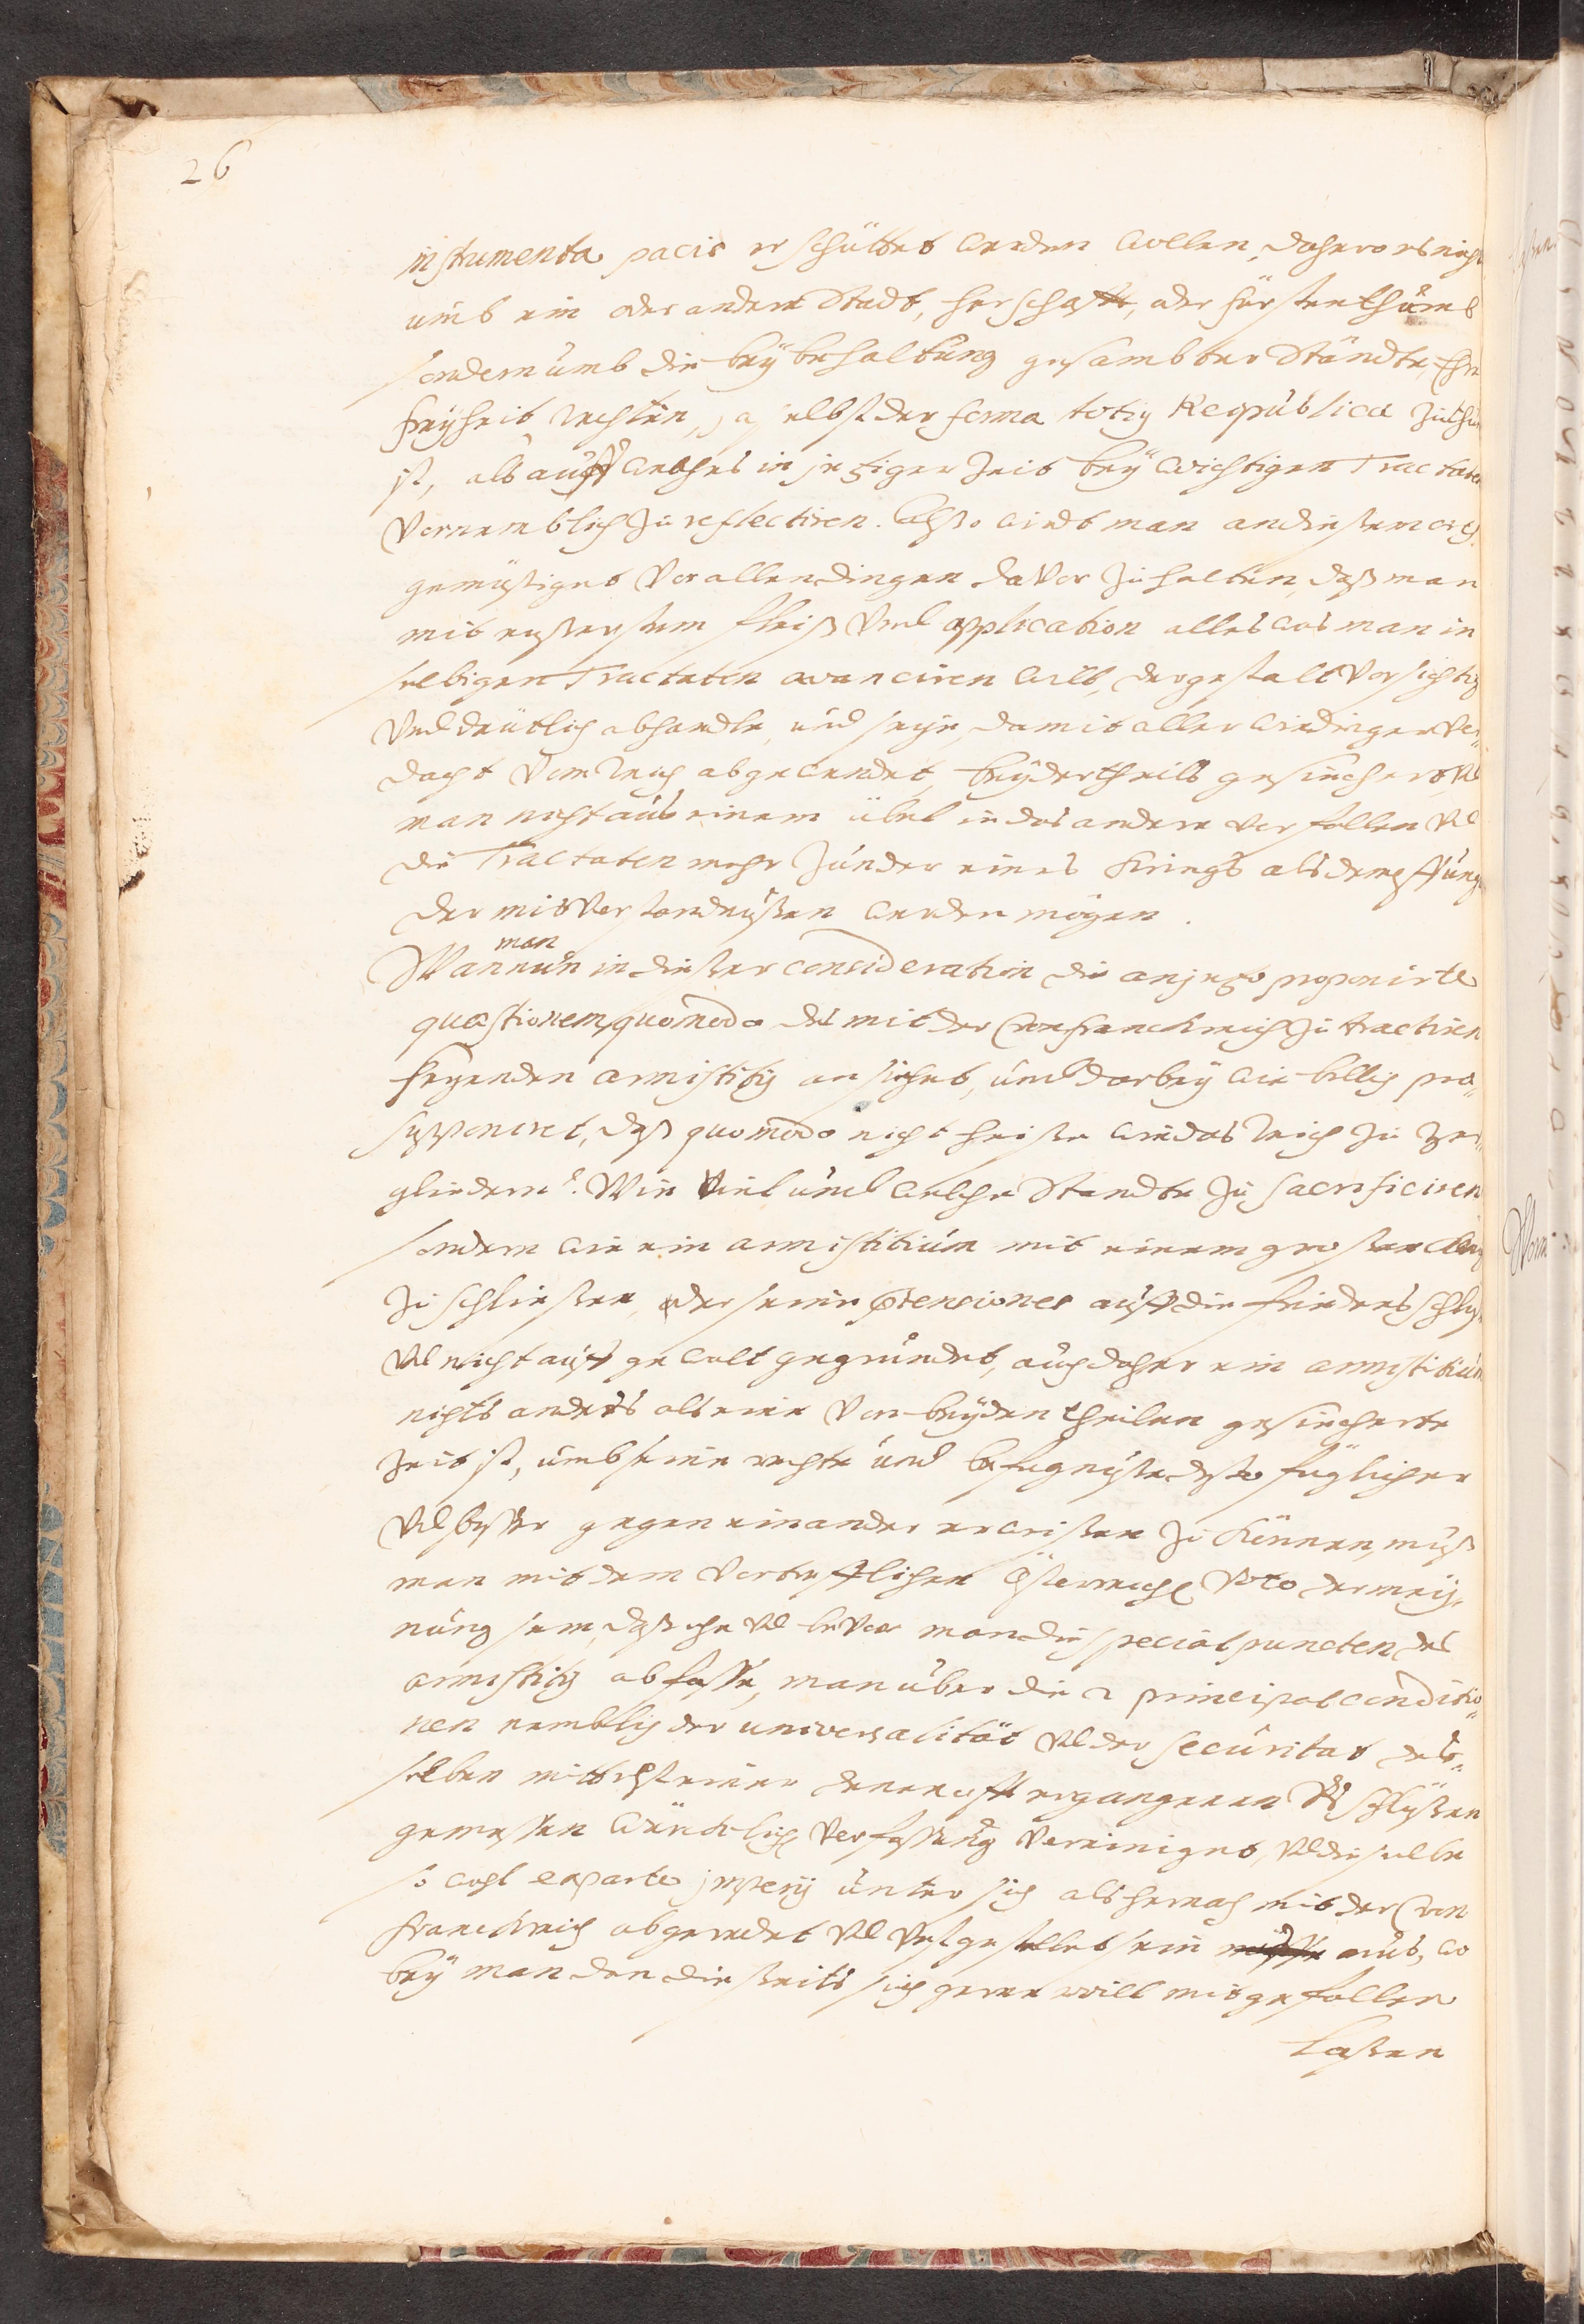 26
instrumenta pacis erschüttet werden wollen, dahero es nicht
umb ein oder andere Stadt, herschafft, oder fürstenthumb
sondern umb die beÿbehaltung gesambter Ständte, Ihre
freÿheit rechten, ja selbst der forma totiq Reipublicae zuthun
ist, als auff welches in jetziger Zeit beÿ wichtigen Tractaten
vornemblich zu reflectiren. Also wirdt man an diesem orth
gemüßiget vor allen dingen davor zu halten, daß man
mit eußerstem fleiß vnd application alles was man in
selbigen Tractaten avanciren will, dergestalt vorsichtig
vnd deutlich abhandle, und seye, damit aller wiedriger ver„
dacht vom Reich abgewendet, beÿdertheils gesichert vnd
man nicht aus einem übel in das andere verfallen vnd
die Tractaten mehr Zunder eines Kriegs als dempffung
der misverstendnißen werden mögen.
man
Wan nun in dießer consideration die anjezo proponirte
quaestionem, quomodo das mit der Cron franckreich zu tractiren
seyenden armistitÿ ansiehet, und darbeÿ wie billig prae„
supponiret, daß quomodo nicht heiße wie das Reich zu zer„
gliedern? Wie viel und welche Stendte zu sacrificiren
sondern wie ein armistitium mit einem großen König
zu schließen, der seine praetensiones auff die friedensschlüß
vnd nicht auff gewalt gegründet, auch daher ein armistitium
nichts anders als eine von beÿden theilen gesicherte
Zeit ist, umb seine rechte und befugnüße desto füglicher
vnd beßer gegen einander erweisen zu können, muß
man mit dem vortrefflichen Österreich. voto der meÿ„
nung sein, daß ehe vnd bevor man die special puncten des
armistitÿ abfasse, man über die 2 principal conditio„
nen nemblich der universalität vnd der securitat des„
selben mittelst einer denen offt ergangenen Rschlüßen
gemessen würcklich. verfassung vereiniget, vnd dieselbe
so wohl ex parte imperÿ unter sich als hernach mit der Cron
franckreich abgeredet vnd vestgestellet sein müsse mus, wo
beÿ man den dießeits sich gerne will mitgefallen
laßen